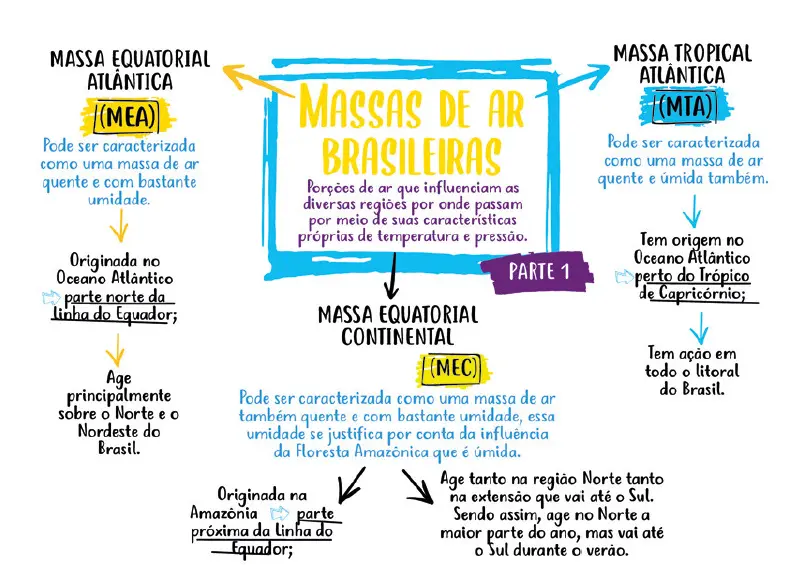 MASSAS DE AR
BRASILEIRAS
Porções de ar que influenciam as
diversas regiões por onde passam
por meio de suas características
próprias de temperatura e pressão.
PARTE 1
MASSA EQUATORIAL
ATLÂNTICA
(MEA)
Pode ser caracterizada
como uma massa de ar
quente e com bastante
umidade.
Originada no
Oceano Atlântico
parte norte da
linha do Equador;
Age
principalmente
sobre o Norte e o
Nordeste do
Brasil.
MASSA EQUATORIAL
CONTINENTAL
(MEC)
Pode ser caracterizada como uma massa de ar
também quente e com bastante umidade, essa
umidade se justifica por conta da influência
da Floresta Amazônica que é úmida.
Originada na
Amazônia parte
próxima da linha do
Equador;
Age tanto na região Norte tanto
na extensão que vai até o Sul.
Sendo assim, age no Norte a
maior parte do ano, mas vai até
o Sul durante o verão.
MASSA TROPICAL
ATLÂNTICA
(MTA)
Pode ser caracterizada
como uma massa de ar
quente e úmida também.
Tem origem no
Oceano Atlântico
perto do Trópico
de Capricórnio;
Tem ação em
todo o litoral
do Brasil.